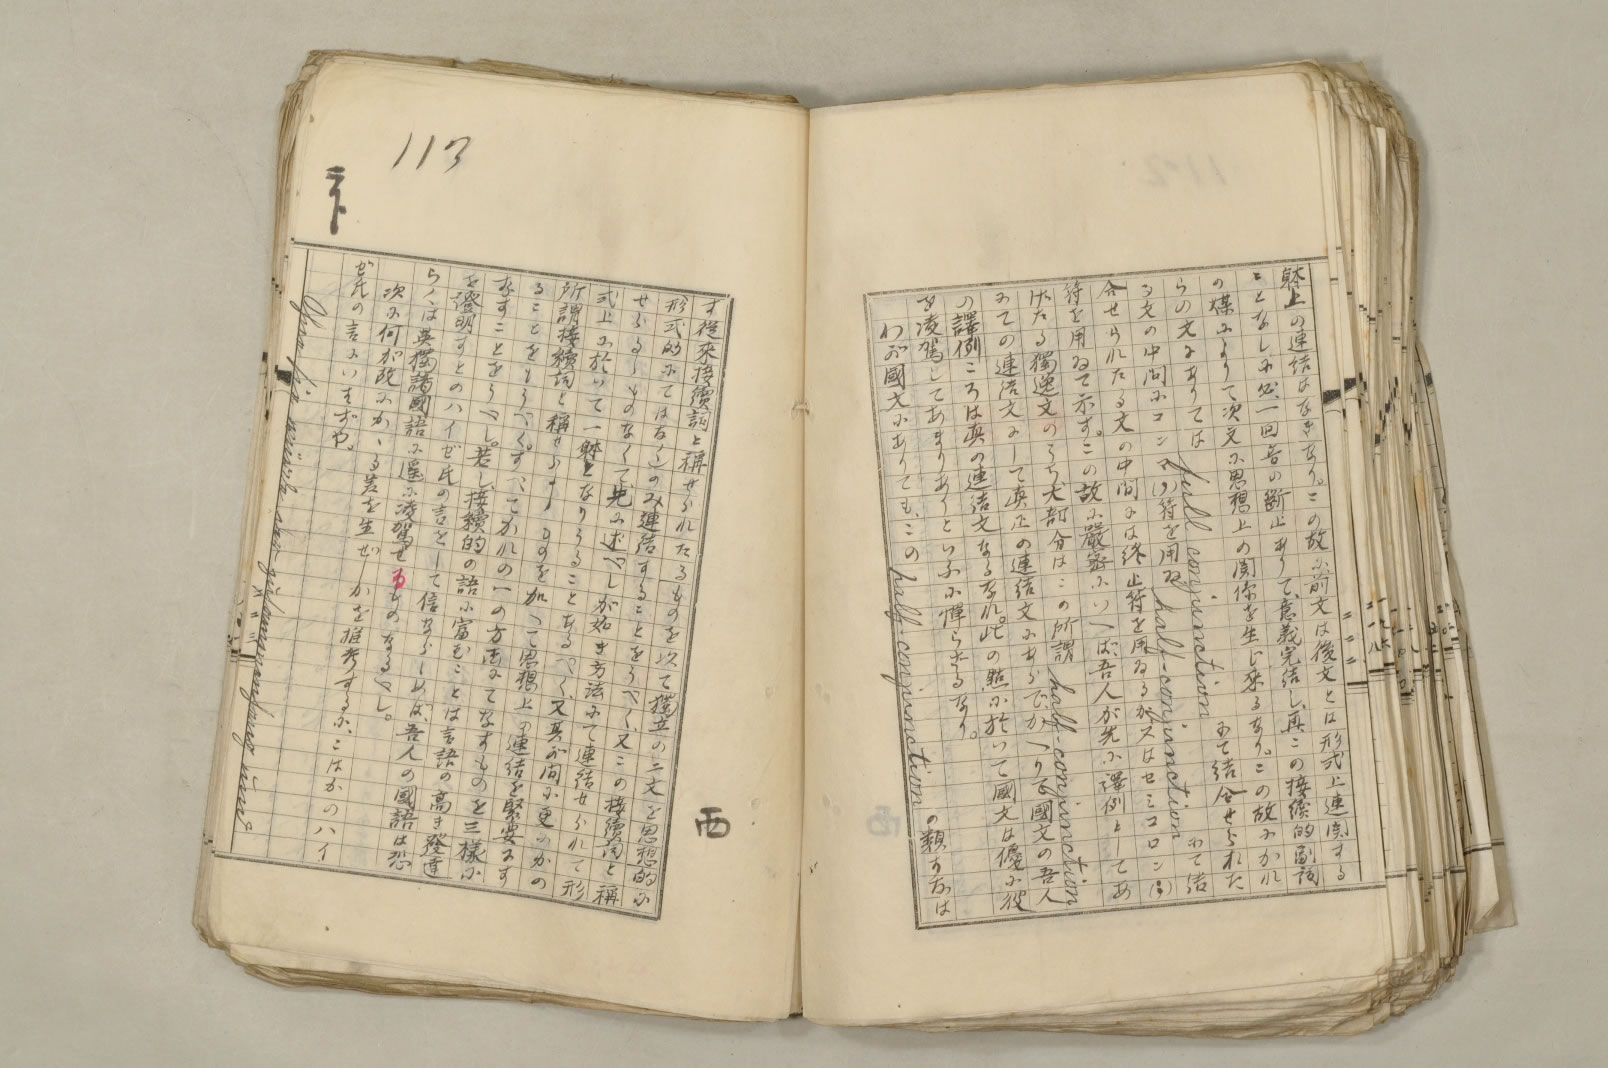 躰上の連結はなきなり。この故に前文は後文とは形式上連関する
ことなしに必一回音の断止ありて、意義完結し、再この接続的副詞
の媒によりて次文に思想上の関係を生じ来るなり。この故にかれ
らの文にありては full conjunction にて結合せられた
る文の中間にコンマ(,)符を用ゐ half-conjunction にて結
合せられたる文の中間には終止符を用ゐるか又はセミコロン(;)
符を用ゐて示す。この故に嚴密にいへば、吾人が先に譯例としてあ
げたる獨逸文のうち大部分はこの所謂 half-conjunction
にての連結文にして眞正の連結文にあらず。かへりて國文の吾人
の譯例ころは眞の連結文なるなれ。此の點に於いて國文は優に彼
を凌駕してあまりありといふに憚らざるなり。
わが國文にありても、この half-conjunction の類すなは
113
西
す從來接續詞と稱せられたるものを以て獨立の二文を思想的に
形式的にてはなくのみ連結することをうべく、又この接續詞と稱
せらるゝものなくて、先に述べしが如き方法にて連結せられて形
式上に於いて一躰となりうることあるべく、又其が間に更にかの
所謂接續詞と稱せらるゝものを加へて思想上の連結を緊要にす
ることをもうべく。すべてかれの一の方法にてなすものを三様に
なすことをうべし。若し、接續的の語に富むことは言語の高き發達
を證明すとのハイゼ氏の言をして信ならしめば、吾人の國語は恐
らくは英獨諸國語に遥に凌駕せるものなるべし。
次に何が故にかゝる差を生ぜしかを推考するに、こはかのハイ
ゼ氏の言にいはずや。